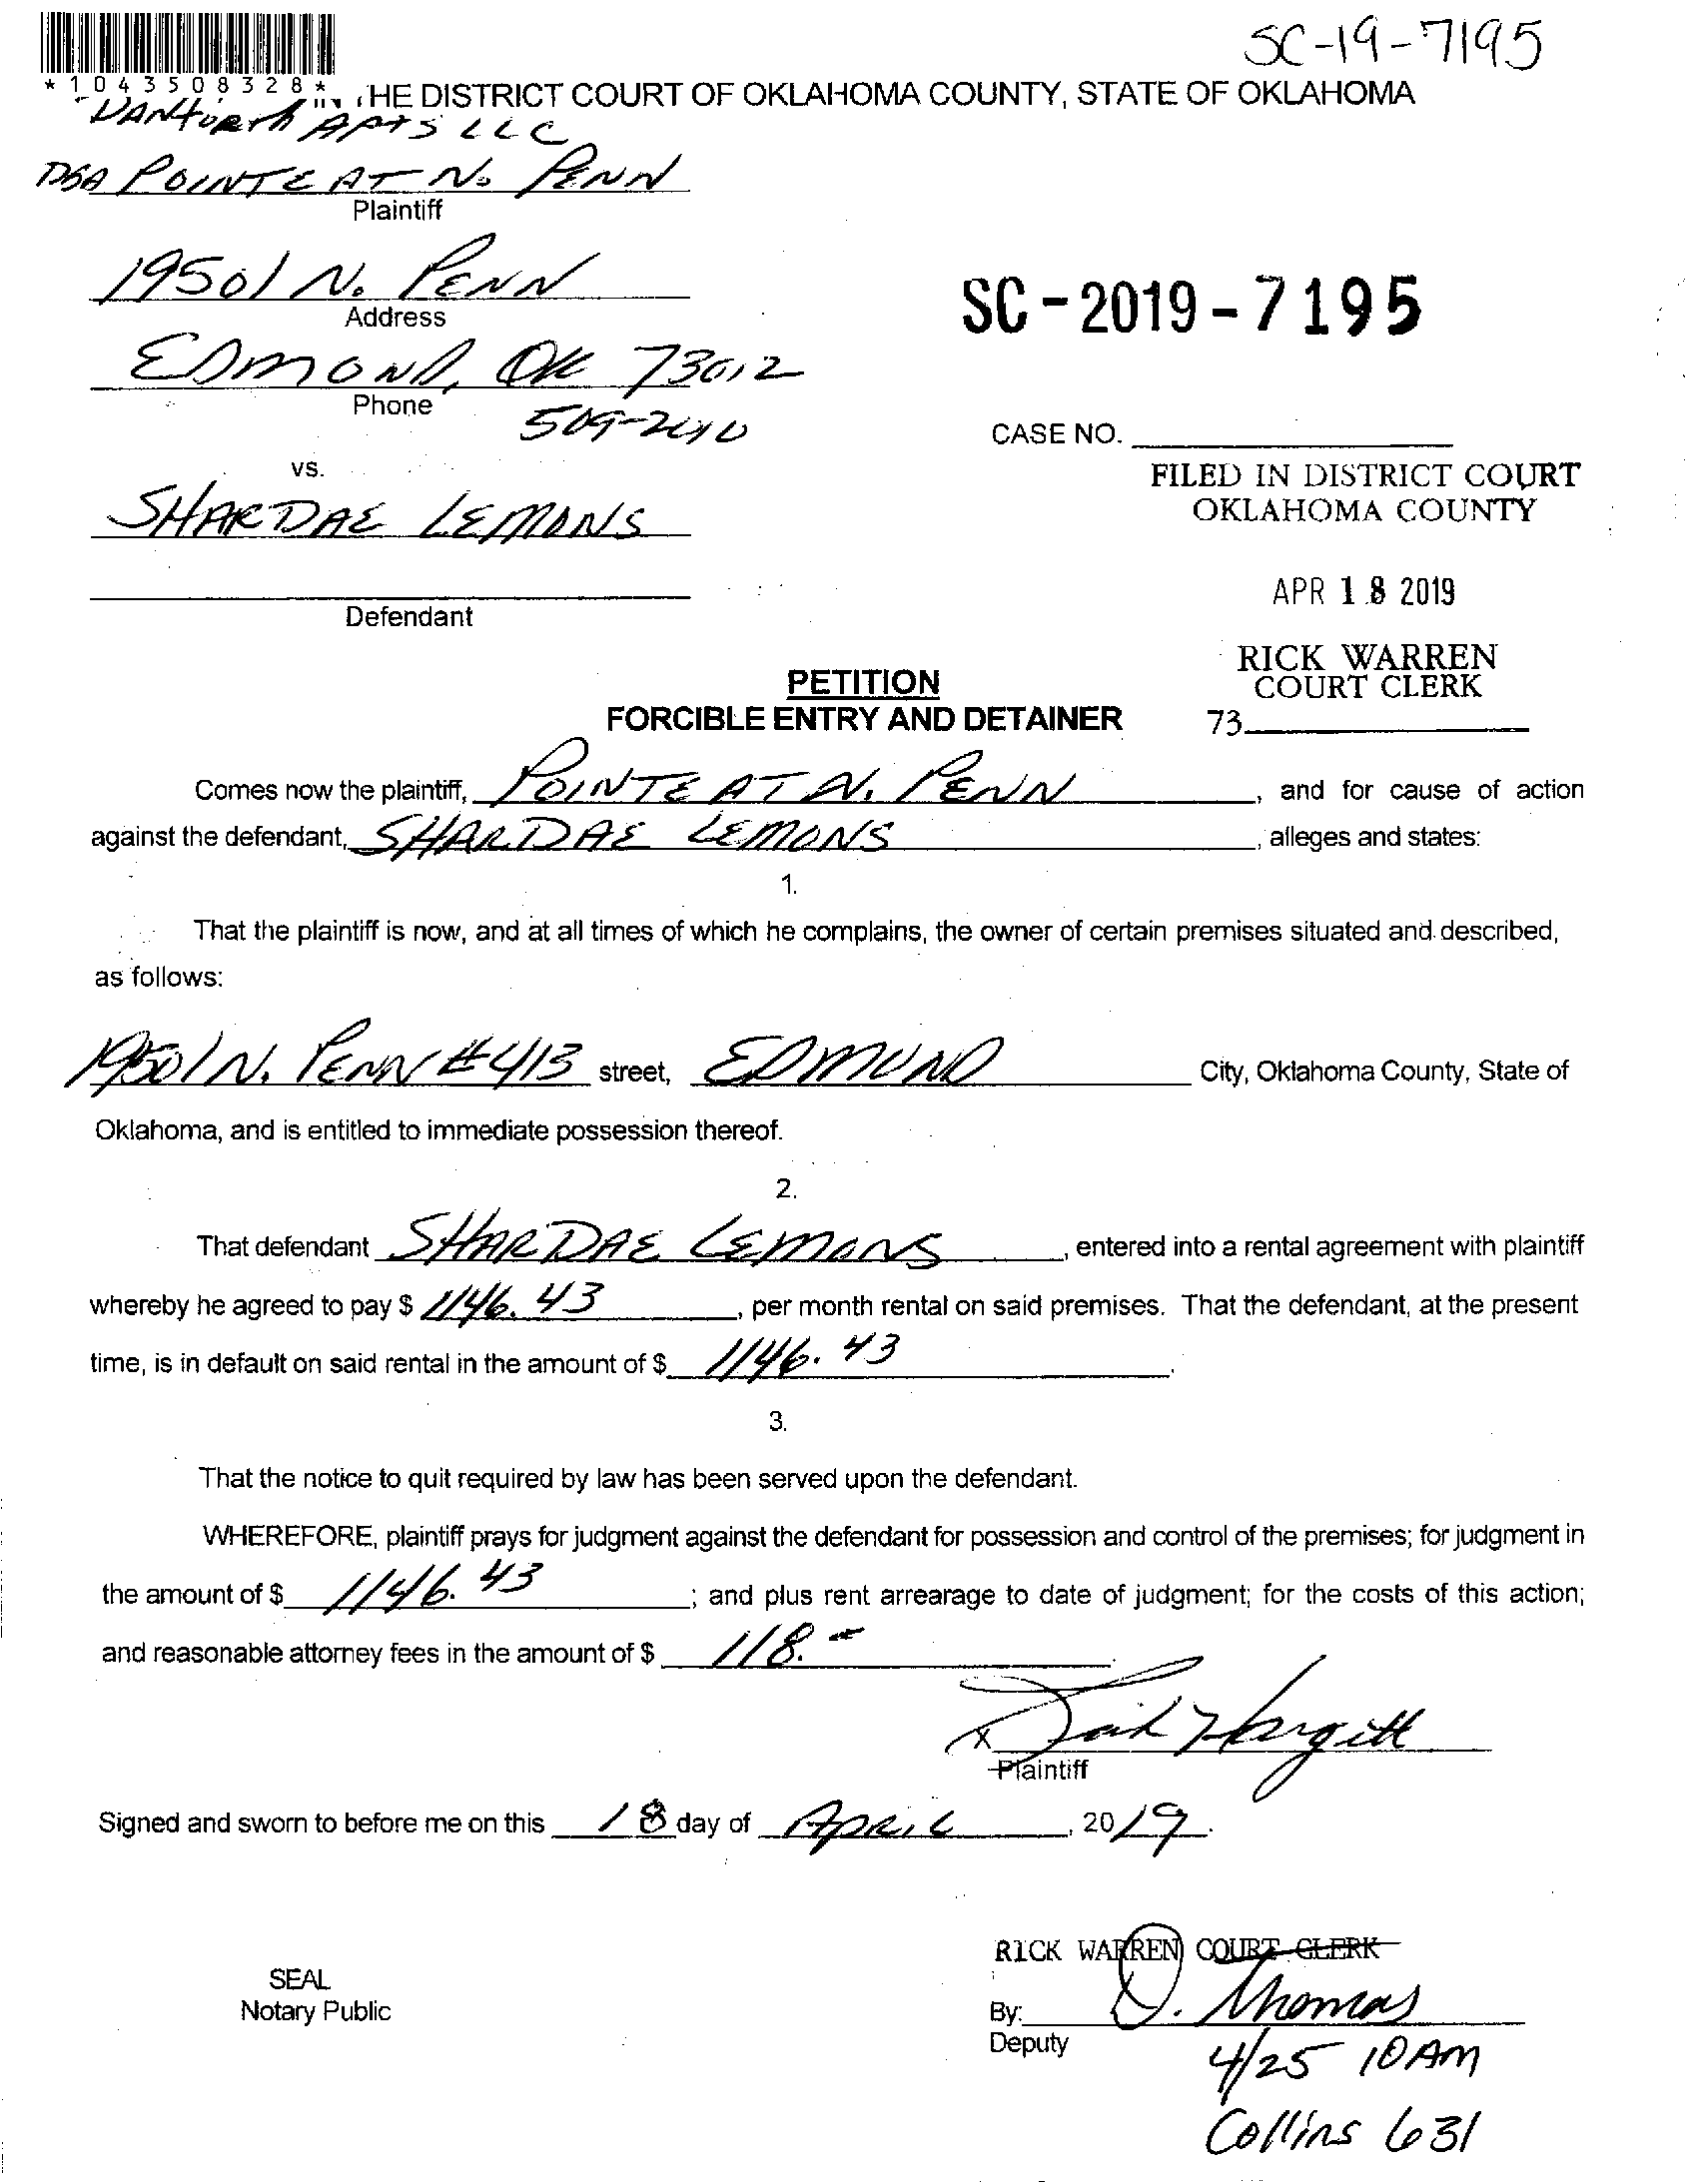 SC-19-7195
*1043508328*
IN THE DISTRICT COURT OF OKLAHOMA COUNTY, STATE OF OKLAHOMA
DANforth APTS LLC
DBA POINTE AT N. PENN
Plaintiff
19501 N. PENN
Address
SC-2019-7195
EDMOND, OK 73012
Phone
509-2010
CASE NO.
vs.
FILED IN DISTRICT COURT
OKLAHOMA COUNTY
SHARDAE LEMONS
APR 18 2019
Defendant
RICK WARREN
COURT CLERK
PETITION
FORCIBLE ENTRY AND DETAINER
73
Comes now the plaintiff, POINTE AT N. PENN, and for cause of action
against the defendant, SHARDAE LEMONS, alleges and states:
1.
That the plaintiff is now, and at all times of which he complains, the owner of certain premises situated and described,
as follows:
19501 N. PENN #413 street, EDMUND City, Oklahoma County, State of
Oklahoma, and is entitled to immediate possession thereof.
2.
That defendant SHARDAE LEMONS, entered into a rental agreement with plaintiff
whereby he agreed to pay $ 1146.43, per month rental on said premises. That the defendant, at the present
time, is in default on said rental in the amount of $ 1146.43.
3.
That the notice to quit required by law has been served upon the defendant.
WHEREFORE, plaintiff prays for judgment against the defendant for possession and control of the premises; for judgment in
the amount of $ 1146.43; and plus rent arrearage to date of judgment; for the costs of this action;
and reasonable attorney fees in the amount of $ 118.-.
X Hargitt
Plaintiff
Signed and sworn to before me on this 18 day of APRIL, 2019.
RICK WARREN COURT CLERK
SEAL
Notary Public
By: D. Thomas
Deputy
4/25 10AM
Collins 631